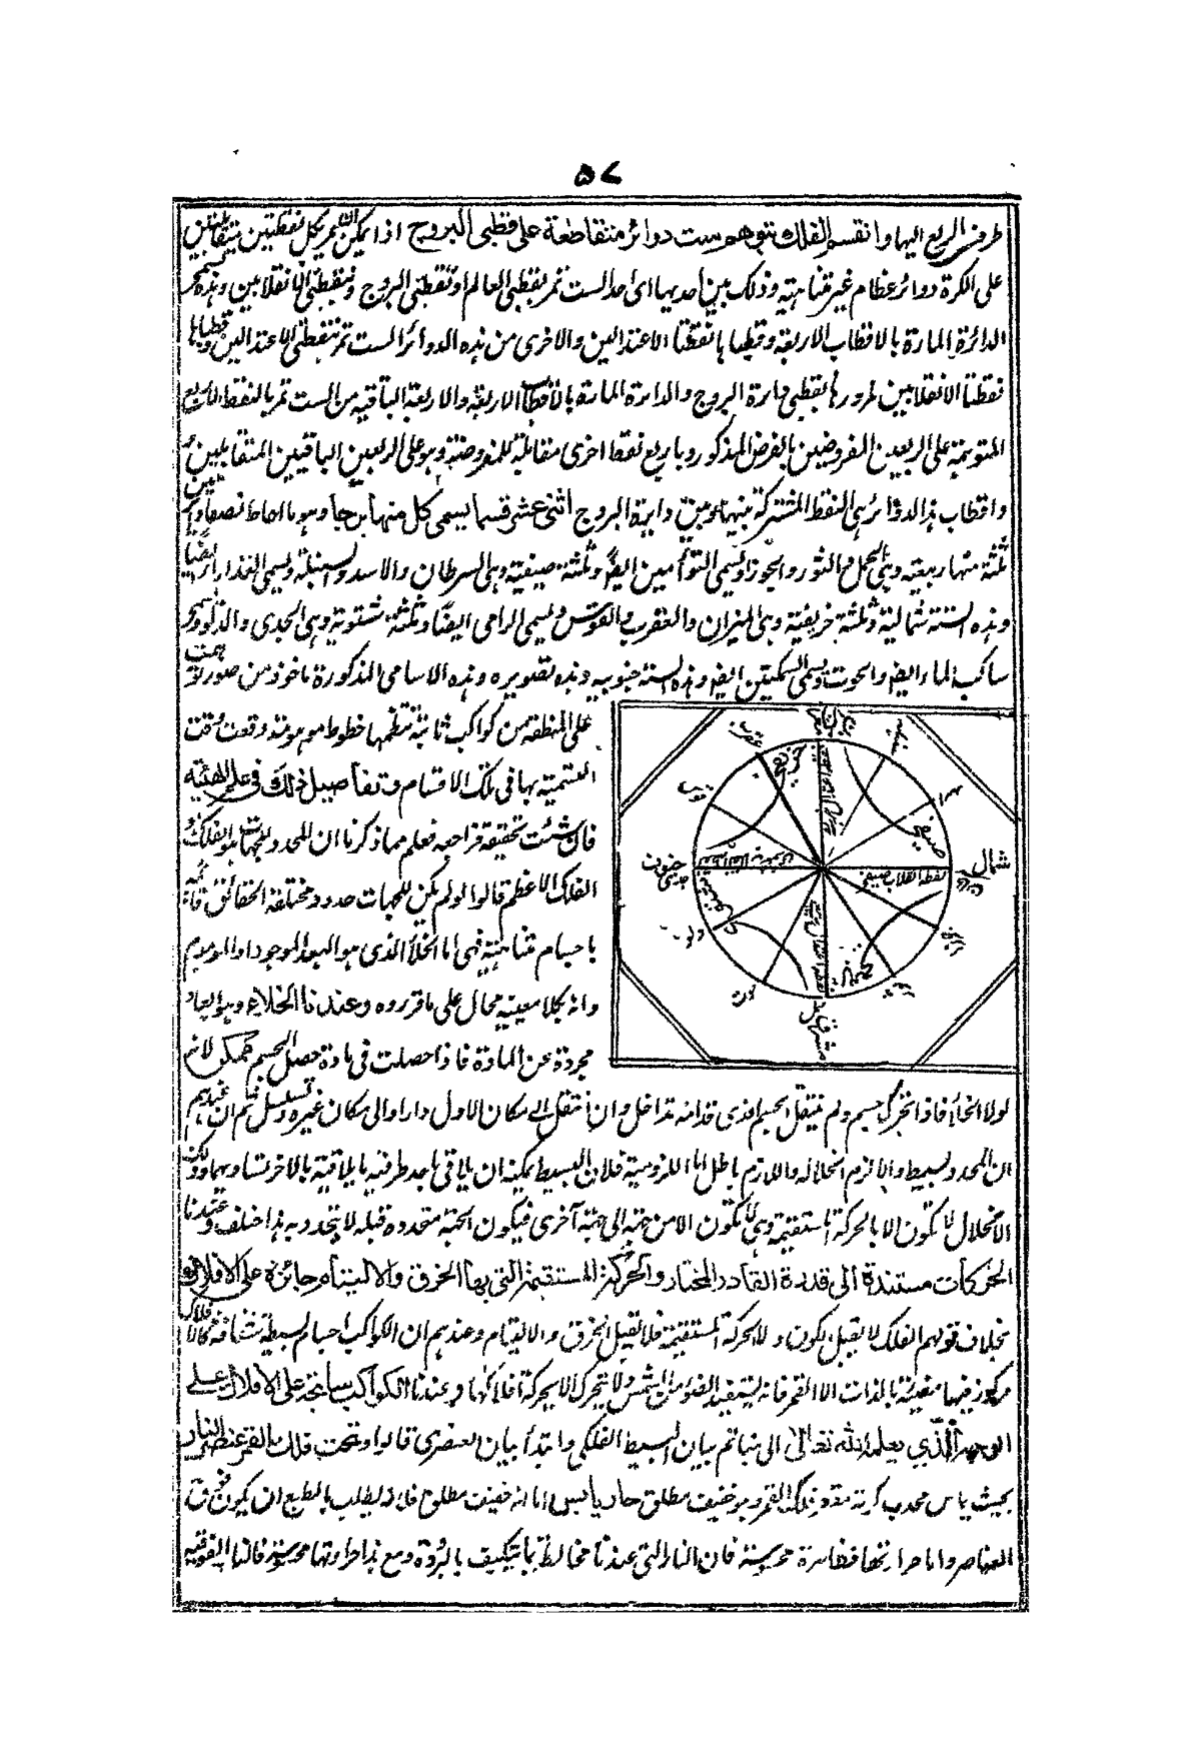 ٥٧
طرفى الربع اليها وانقسم الفلك بتوهم ست دوائر متقاطعة على قطبى البروج اذا يمكن ان تمر بكل نقطتين متقابلتين
على الكرة دوائر عظام غير متناهية وذلك بين احديها اى احد الست تمر بقطبى العالم او بقطبى البروج وبنقطتى الانقلابين وهذه
الدائرة المارة بالاقطاب الاربعة وقطباها نقطتا الاعتدالين والاخرى من هذه الدوائر الست تمر بنقطتى الاعتدالين وقطباها
نقطتا الانقلابين لمرورها بقطبى دائرة البروج والدائرة المارة بالاقطاب الاربعة والاربعة الباقية من الست تمر بالنقط الاربع
المتوهمة على الربعين المفروضين بالفرض المذكور وباربع نقط اخرى مقابلة للمفروضة وهو على الربعين الباقيين المتقابلين
واقطاب هذه الدوائر هى النقط المشتركة بينها وبين دائرة البروج اثنى عشر قسما يسمى كل منها برجا وهو ما احاط نصفا دائرتين
ثلثة منها ربيعية وهى الحمل والثور والجوزا ويسمى التوأمين ايضا وثلثة صيفية وهى السرطان والاسد والسنبلة ويسمى العذراء ايضا
وهذه الستة شمالية وثلثة خريفية وهى الميزان والعقرب والقوس ويسمى الرامى ايضا وثلثة شتوية وهى الجدى والدلو ويسمى
ساكب الماء ايضا والحوت ويسمى السمكتين ايضا وهذه الستة جنوبية وهذه تصويره وهذه الاسامى المذكورة ماخوذ من صور توهمت
على المنطقة من كواكب ثابتة تنظمها خطوط موهومة وقعت وقت
التسمية بها فى تلك الاقسام وتفاصيل ذلك فى علم الهيئة
فان شئت تحقيقه فراجعه فعلم مما ذكرنا ان المحدد للجهات هو الفلك
الفلك الاعظم قالوا لو لم يكن للجهات حدود مختلفة الحقائق قائمة
باجسام متناهية فهى اما الخلأ الذى هو البعد الموجود او الموهوم
وانه بكلا معنييه محال على ما قرروه وعندنا الخلاء وهو ابعاد
مجردة عن المادة فاذا حصلت فى مادة حصل الجسم ممكن لانه
شمال
جنوب
عقرب
قوس
جدى
دلو
حوت
نقطة انقلاب صيفى
لولا الخلأ فاذا تحرك جسم ولم ينتقل الجسم الذى قدامه تداخل وان انتقل الى مكان الاول دار او الى مكان غيره تسلسل ثم ان عندهم
ان المحدد بسيط والا لزم انحلاله واللازم باطل اما اللزومية فلان البسيط يمكنه ان يلاقى باحد طرفيه ما يلاقيه بالاخر لتساويهما ولكن
الانحلال لا تكون الا بالحركة المستقيمة وهى لا تكون الا من جهة الى جهة اخرى فيكون الجهة متحددة قبله لا يتحدد به هذا خلف وعندنا
الحركات مستندة الى قدرة القادر المختار والحركة المستقيمة التى بها الخرق والالتيام جائزة على الافلاك
بخلاف قولهم الفلك لا يقبل الكون ولا الحركة المستقيمة فلا تقبل الخرق والالتيام وعندهم ان الكواكب اجسام بسيطة شفافة كالافلاك
مركوز فيها مضيئة بالذات الا القمر فانه يستفيد الضوء من الشمس ولا يتحرك الا بحركة افلاكها وعندنا الكواكب سابحة على الافلاك على
الوجه الذى يعلمه الله تعالى الى هنا تم بيان البسيط الفلكى وابتدأ بيان العنصرى قالوا وتحت فلك القمر عنصر النار
بحيث يماس محدب كرته مقعر فلك القمر وهو خفيف مطلق حار يابس اما انه خفيف مطلق فلانه يطلب بالطبع ان يكون فوق
العناصر واما حرارتها فظاهرة محسوسة فان النار التى عندنا مخالطة بما يتكيف بالبرودة ومع هذا حرارتها محسوسة فالنار الفوقية